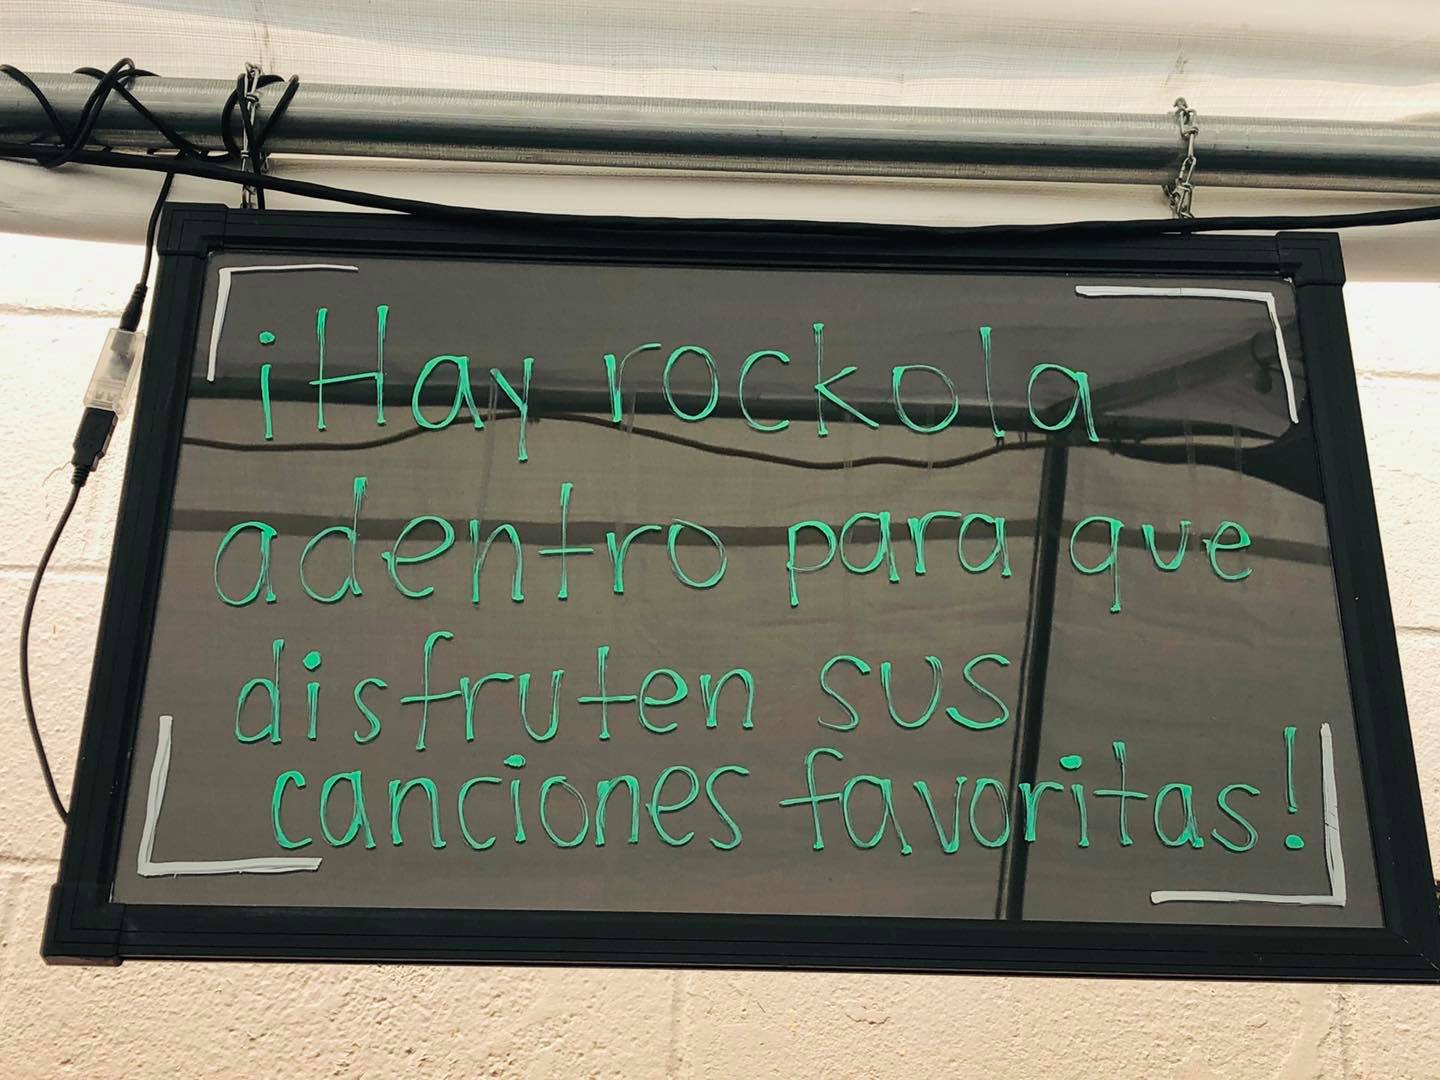 ¡Hay rockola
adentro para que
disfruten sus
canciones favoritas!